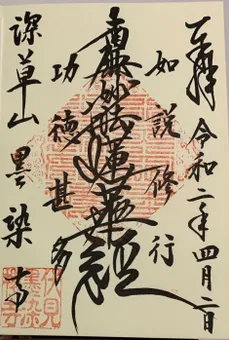 奉拝 令和二年四月二日
如説修行
南無妙法蓮華経
功徳甚多
深草山 墨染寺